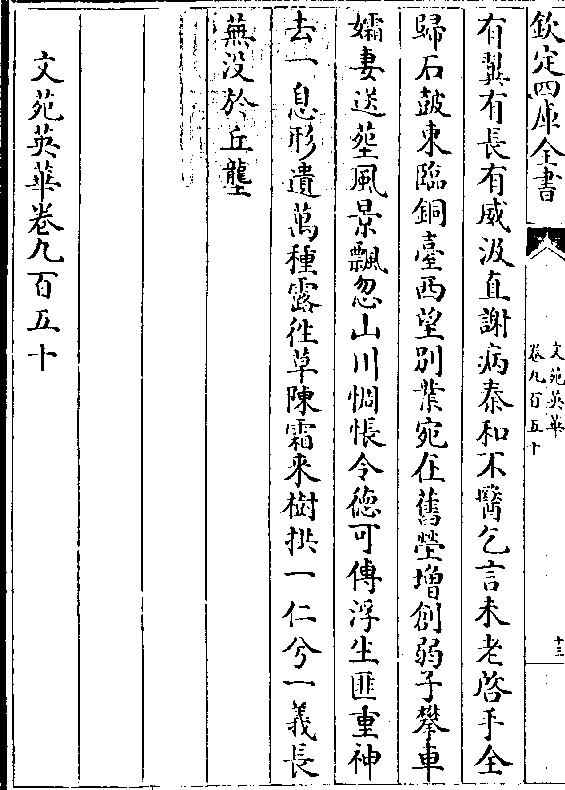 欽定四庫全書
文苑英華
卷九百五十
十三
有翼有長有威汲直謝病泰和不醫乞言未老啓手全
歸石皷東臨銅臺西望别業宛在舊塋增創弱子攀車
孀妻送塟風景飄忽山川惆悵令德可傳浮生匪重神
去一息形遺萬種露往草陳霜來樹拱一仁兮一義長
蕪没於丘壟
文苑英華卷九百五十